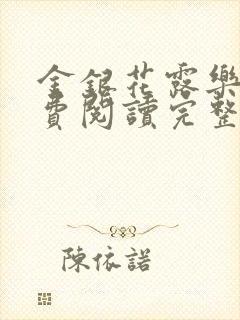 金銀花露樂
費閱讀完整
陳依諾